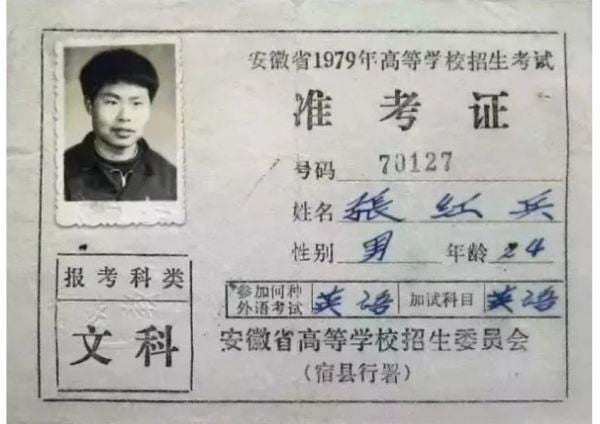 安徽省1979年高等学校招生考试
准考证
号码 70127
姓名 張红兵
性别 男 年龄 24
报考科类
文科
参加何种外语考试 英语 加试科目 英语
安徽省高等学校招生委员会
（宿县行署）